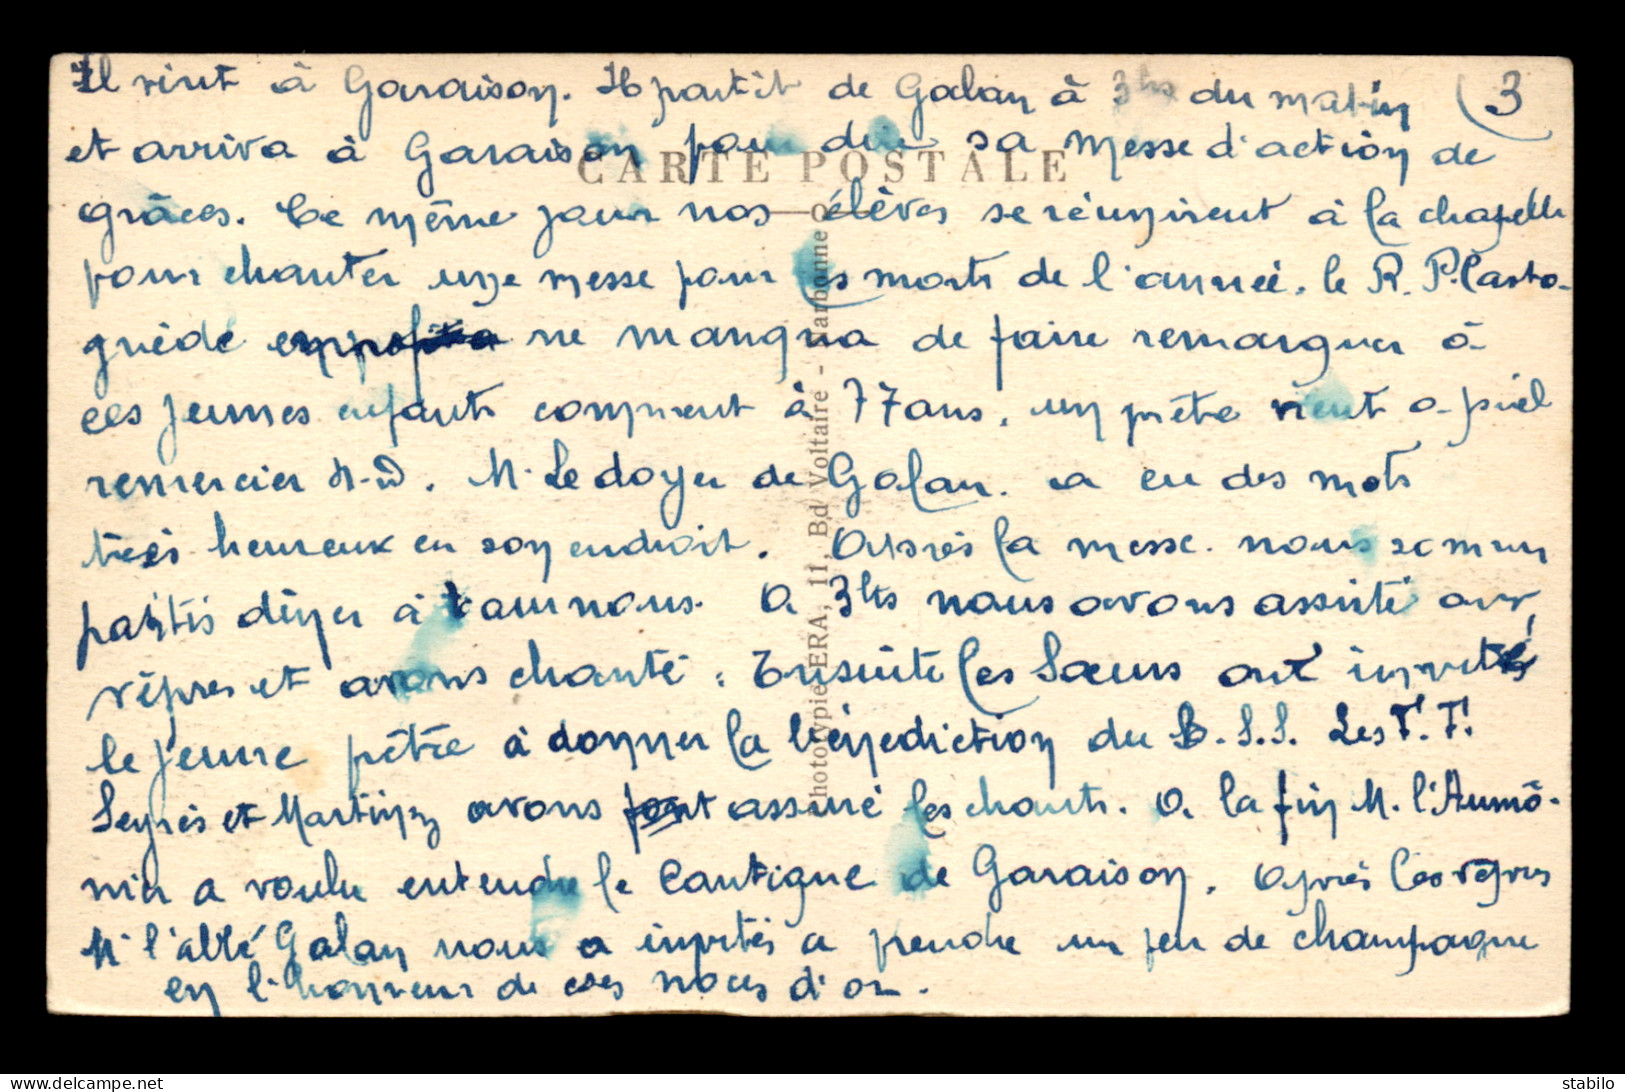 Il vint à Garaison. Il partit de Galan à 3hs du matin (3
et arriva à Garaison pour dire sa messe d'action de
CARTE POSTALE
grâces. Ce même jour nos élèves se réunirent à la chapelle
pour chanter une messe pour les morts de l'année. le R. P. Casto-
guédé ne manqua de faire remarquer à
ces jeunes enfants comment à 77 ans, un prêtre vient à pied
remercier N-D. M. Le doyen de Galan. a eu des mots
très heureux en son endroit. Après la messe. nous sommes
partis dîner à Tournous. A 3hs nous avons assisté aux
vêpres et avons chanté. Ensuite les Soeurs ont invité
le jeune prêtre à donner la bénédiction du S.S. Les F.F.
Seyrès et Martinez avons assuré les chants. A la fin M. l'Aumô-
nier a voulu entendre le Cantique de Garaison. Après les vêpres
M. l'abbé Galan nous a invités a prendre un peu de champagne
en l'honneur de ces noces d'or.
Phototypie ERA, 11, Bd Voltaire - Narbonne
stabilo